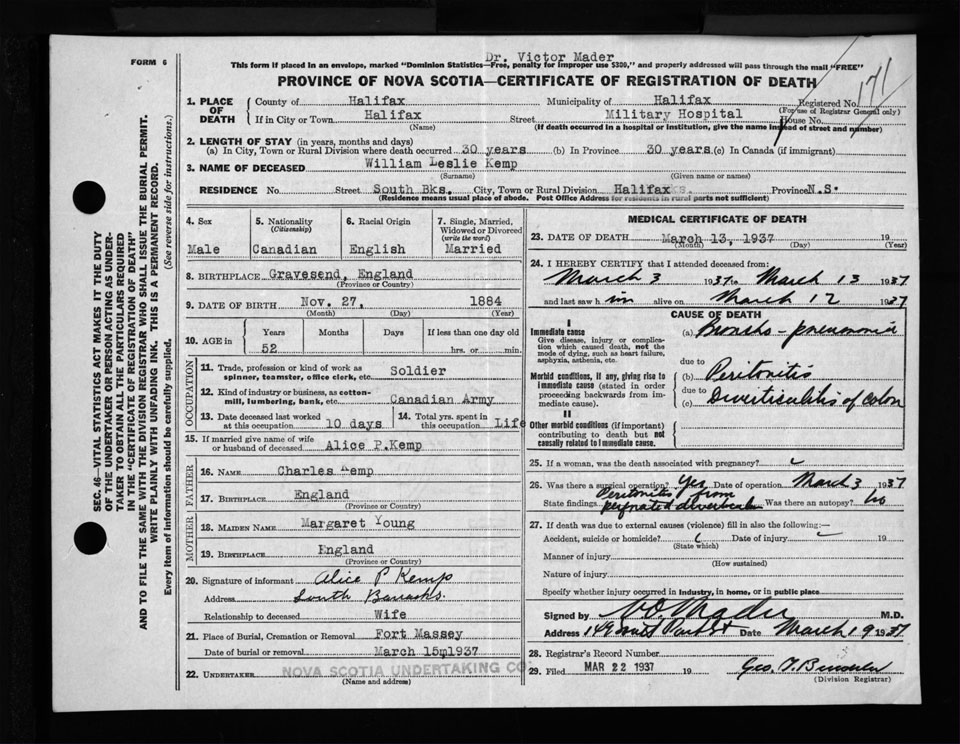 Dr. Victor Mader
FORM 6
This form if placed in an envelope, marked "Dominion Statistics—Free, penalty for improper use $300," and properly addressed will pass through the mail "FREE"
PROVINCE OF NOVA SCOTIA—CERTIFICATE OF REGISTRATION OF DEATH
171
1. PLACE OF DEATH
County of Halifax Municipality of Halifax Registered No.
(For use of Registrar General only)
If in City or Town Halifax Street Military Hospital House No.
(Name) (If death occurred in a hospital or institution, give the name instead of street and number)
2. LENGTH OF STAY (in years, months and days)
(a) In City, Town or Rural Division where death occurred 30 years (b) In Province 30 years (c) In Canada (if immigrant)
3. NAME OF DECEASED William Leslie Kemp
(Surname) (Given name or names)
RESIDENCE No. Street South Bks. City, Town or Rural Division Halifax Province N.S.
(Residence means usual place of abode. Post Office Address for residents in rural parts not sufficient)
4. Sex
Male
5. Nationality
(Citizenship)
Canadian
6. Racial Origin
English
7. Single, Married, Widowed or Divorced
(write the word)
Married
8. BIRTHPLACE Gravesend, England
(Province or Country)
9. DATE OF BIRTH Nov. 27, 1884
(Month) (Day) (Year)
10. AGE in
Years Months Days If less than one day old
52 hrs. or min.
OCCUPATION
11. Trade, profession or kind of work as
spinner, teamster, office clerk, etc. Soldier
12. Kind of industry or business, as cotton-
mill, lumbering, bank, etc. Canadian Army
13. Date deceased last worked
at this occupation 10 days
14. Total yrs. spent in
this occupation Life
15. If married give name of wife
or husband of deceased Alice P.Kemp
FATHER
16. NAME Charles Kemp
17. BIRTHPLACE England
(Province or Country)
MOTHER
18. MAIDEN NAME Margaret Young
19. BIRTHPLACE England
(Province or Country)
20. Signature of informant Alice P Kemp
Address South Barracks.
Relationship to deceased Wife
21. Place of Burial, Cremation or Removal Fort Massey
Date of burial or removal March 15m1937
22. UNDERTAKER NOVA SCOTIA UNDERTAKING CO
(Name and address)
MEDICAL CERTIFICATE OF DEATH
23. DATE OF DEATH March 13, 1937 19
(Month) (Day) (Year)
24. I HEREBY CERTIFY that I attended deceased from:
March 3 1937 to March 13 1937
and last saw him alive on March 12 1937
CAUSE OF DEATH
I
Immediate cause
Give disease, injury or complica-
tion which caused death, not the
mode of dying, such as heart failure,
asphyxia, asthenia, etc.
(a) Broncho-pneumonia
due to
Morbid conditions, if any, giving rise to
immediate cause (stated in order
proceeding backwards from im-
mediate cause).
(b) Peritonitis
due to
(c) Diverticulitis of Colon
II
Other morbid conditions (if important)
contributing to death but not
causally related to immediate cause.
25. If a woman, was the death associated with pregnancy?
26. Was there a surgical operation? Yes Date of operation March 3 1937
State findings Peritonitis from perforated diverticulum Was there an autopsy? No
27. If death was due to external causes (violence) fill in also the following:—
Accident, suicide or homicide? Date of injury 19
(State which)
Manner of injury
(How sustained)
Nature of injury
Specify whether injury occurred in Industry, in home, or in public place
Signed by M.D.
Address Date March 19 1937
28. Registrar's Record Number
29. Filed MAR 22 1937 19
(Division Registrar)
SEC. 46—VITAL STATISTICS ACT MAKES IT THE DUTY
OF THE UNDERTAKER OR PERSON ACTING AS UNDER-
TAKER TO OBTAIN ALL THE PARTICULARS REQUIRED
IN THE "CERTIFICATE OF REGISTRATION OF DEATH"
AND TO FILE THE SAME WITH THE DIVISION REGISTRAR WHO SHALL ISSUE THE BURIAL PERMIT.
WRITE PLAINLY WITH UNFADING INK. THIS IS A PERMANENT RECORD.
Every item of information should be carefully supplied. (See reverse side for instructions.)